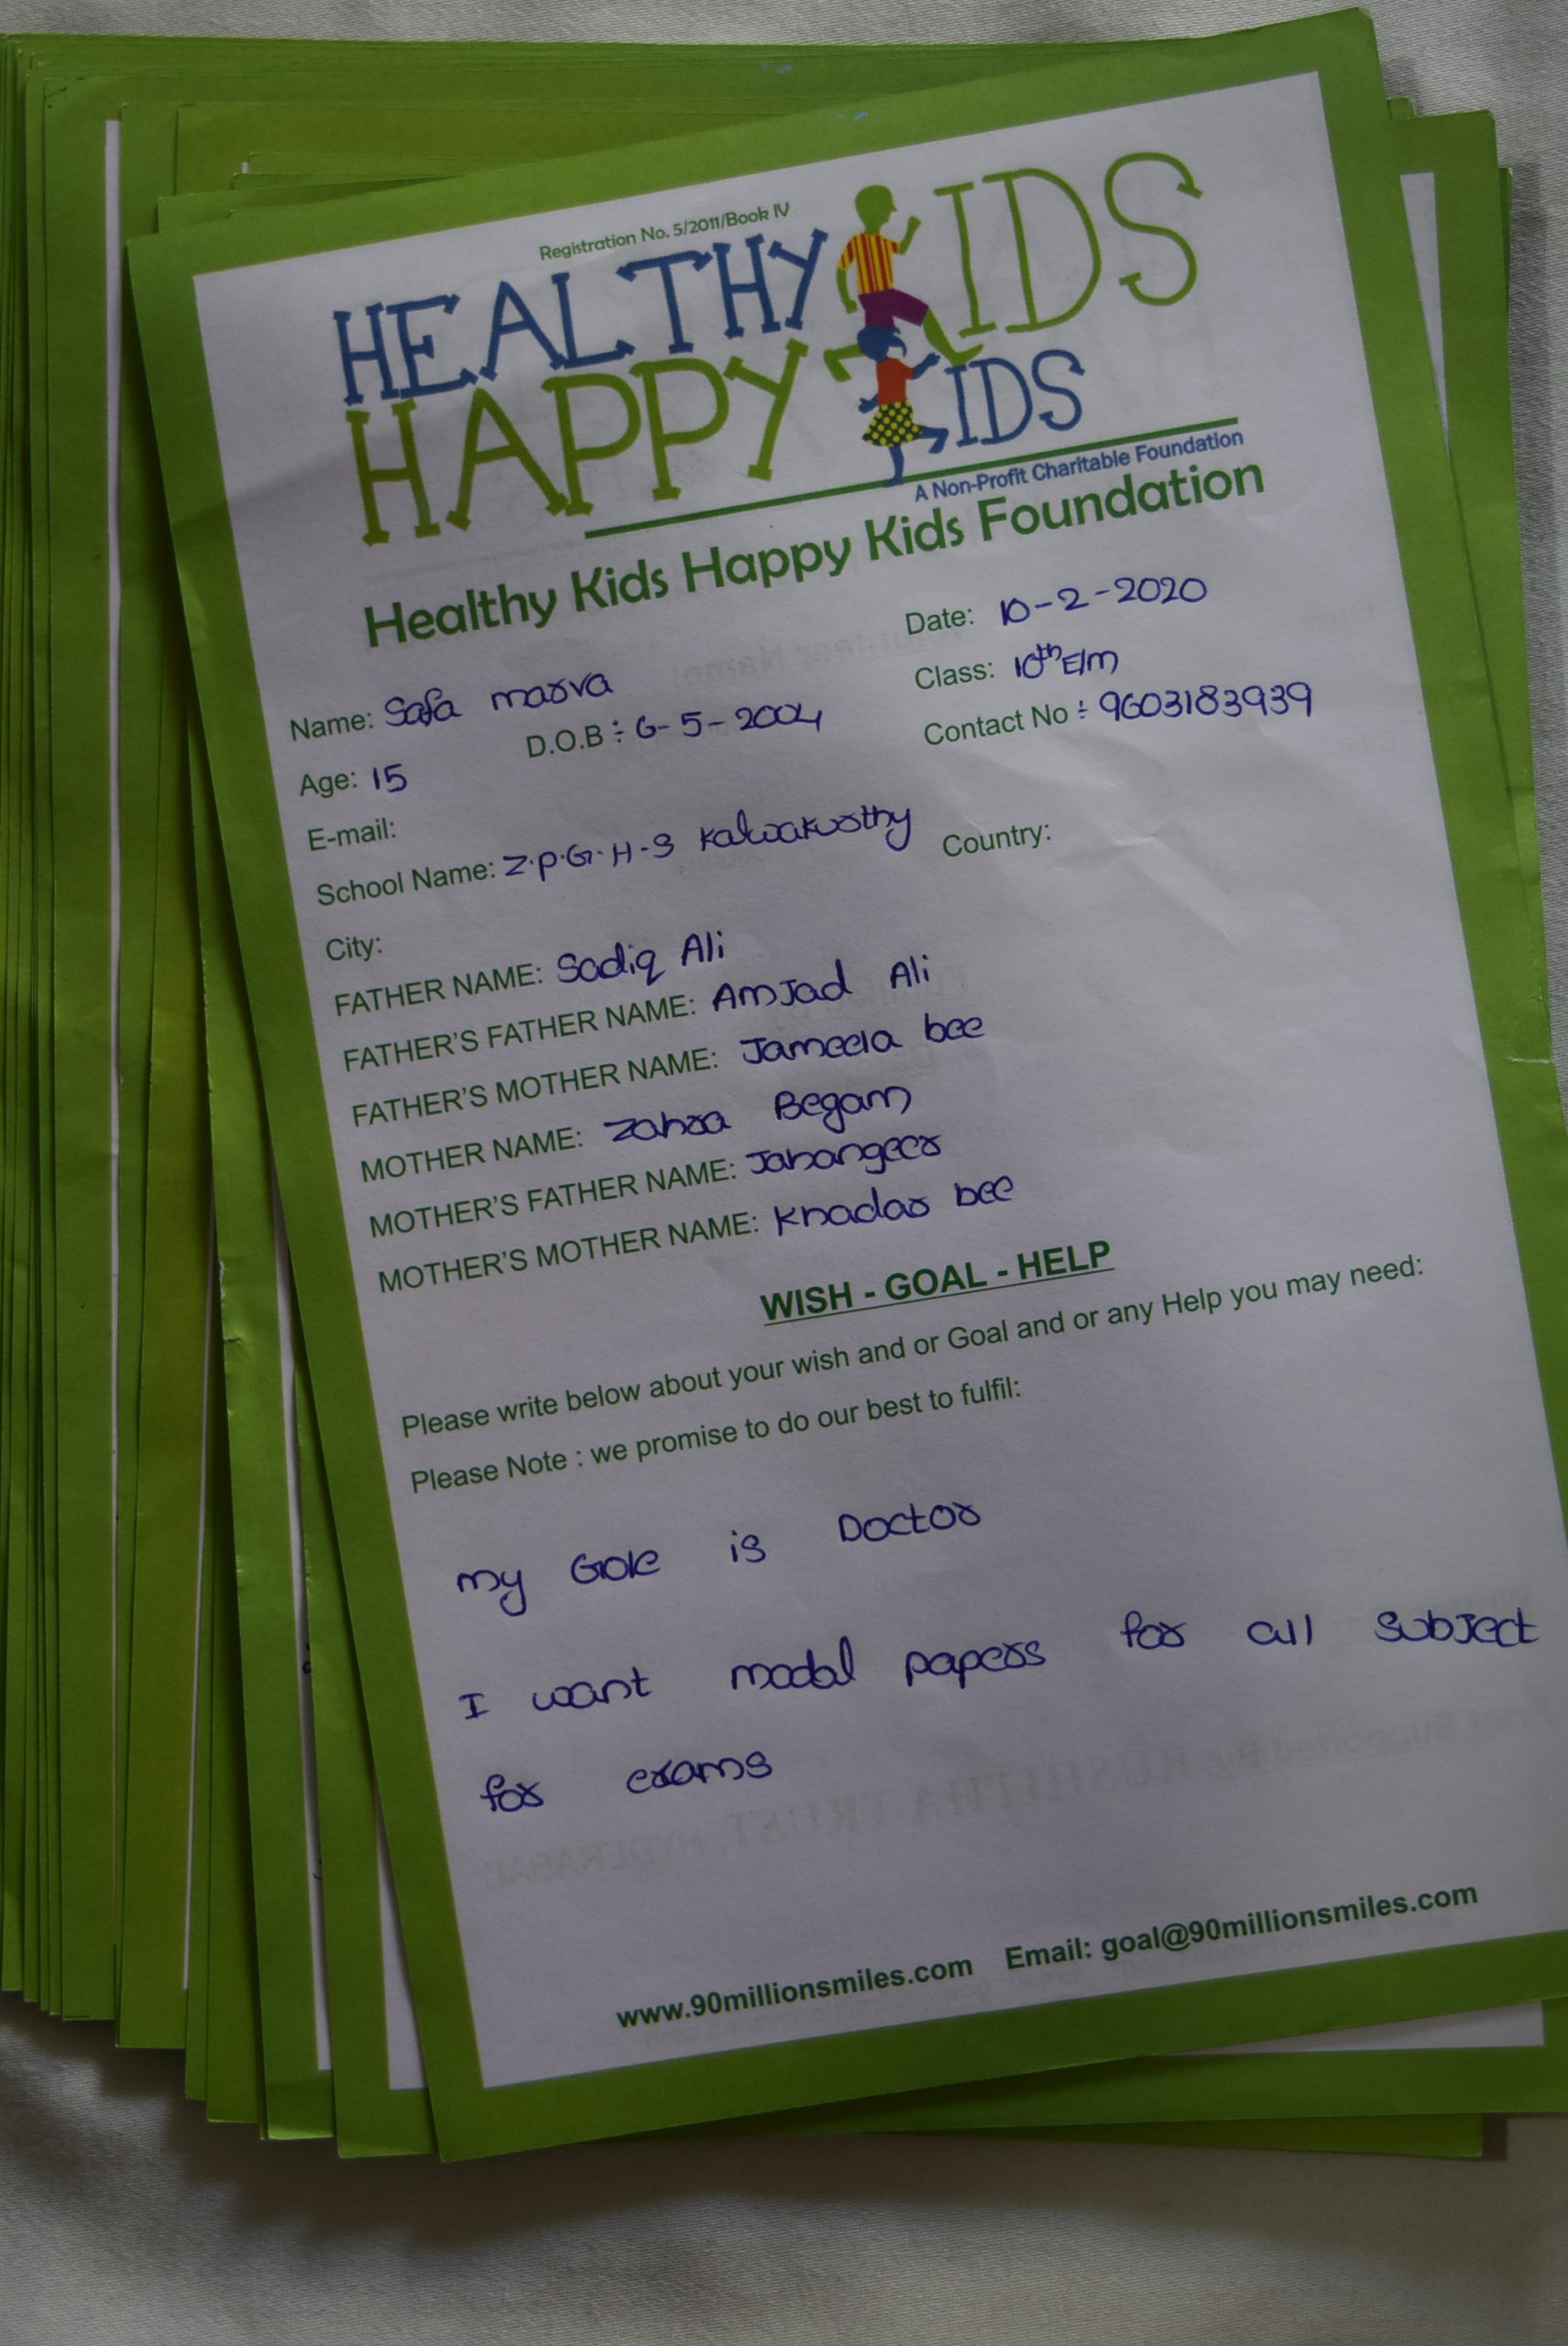 Registration No. 5/2011/Book IV
HEALTHY KIDS
HAPPY KIDS
A Non-Profit Charitable Foundation
Healthy Kids Happy Kids Foundation
Date: 10-2-2020
Name: Safa marva
Class: 10th E/m
Age: 15 D.O.B : 6-5-2004 Contact No : 9603183939
E-mail:
School Name: Z.P.G.H.S kalwakurthy
City: Country:
FATHER NAME: Sadiq Ali
FATHER'S FATHER NAME: AmJad Ali
FATHER'S MOTHER NAME: Jameela bee
MOTHER NAME: Zahra Begam
MOTHER'S FATHER NAME: Jahangeer
MOTHER'S MOTHER NAME: Khadar bee
WISH - GOAL - HELP
Please write below about your wish and or Goal and or any Help you may need:
Please Note : we promise to do our best to fulfil:
my Gole is Doctor
I want modal papers for all subJect
for exams
www.90millionsmiles.com Email: goal@90millionsmiles.com